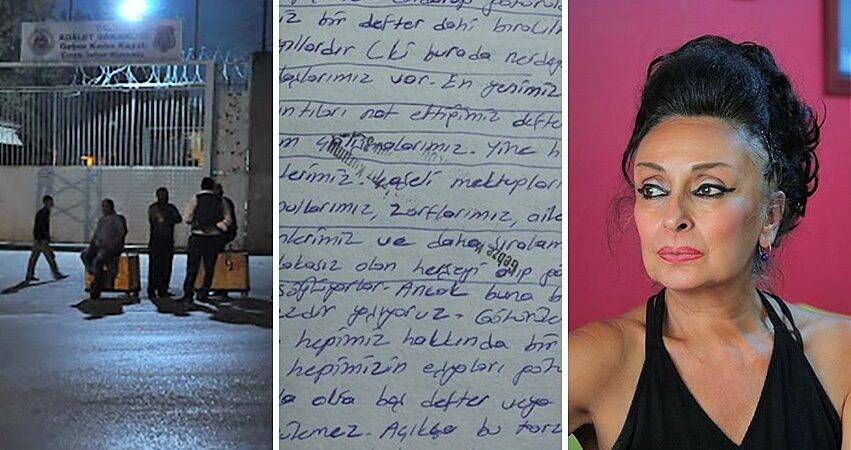 T.C.
ADALET BAKANLIĞI
Gebze Kadın Kapalı
Ceza İnfaz Kurumu
götürül
miz bir defter dahi bırakılm
yıllardır (ki burada neredey
daşlarımız var. En yenimiz
ntıları not ettiğimiz defte
m çalışmalarımız. Yine h
lerimiz. Kaşeli mektupları
ullarımız, zarflarımız, aile
nlerimiz ve daha sıralam
lakasız olan herşeyi alıp gö
söylüyorlar. Ancak buna b
zdır yaşıyoruz. Götürülec
hepimiz hakkında bir
hepimizin eşyaları götü
defter veya
ülemez. Açıkça bu tarz